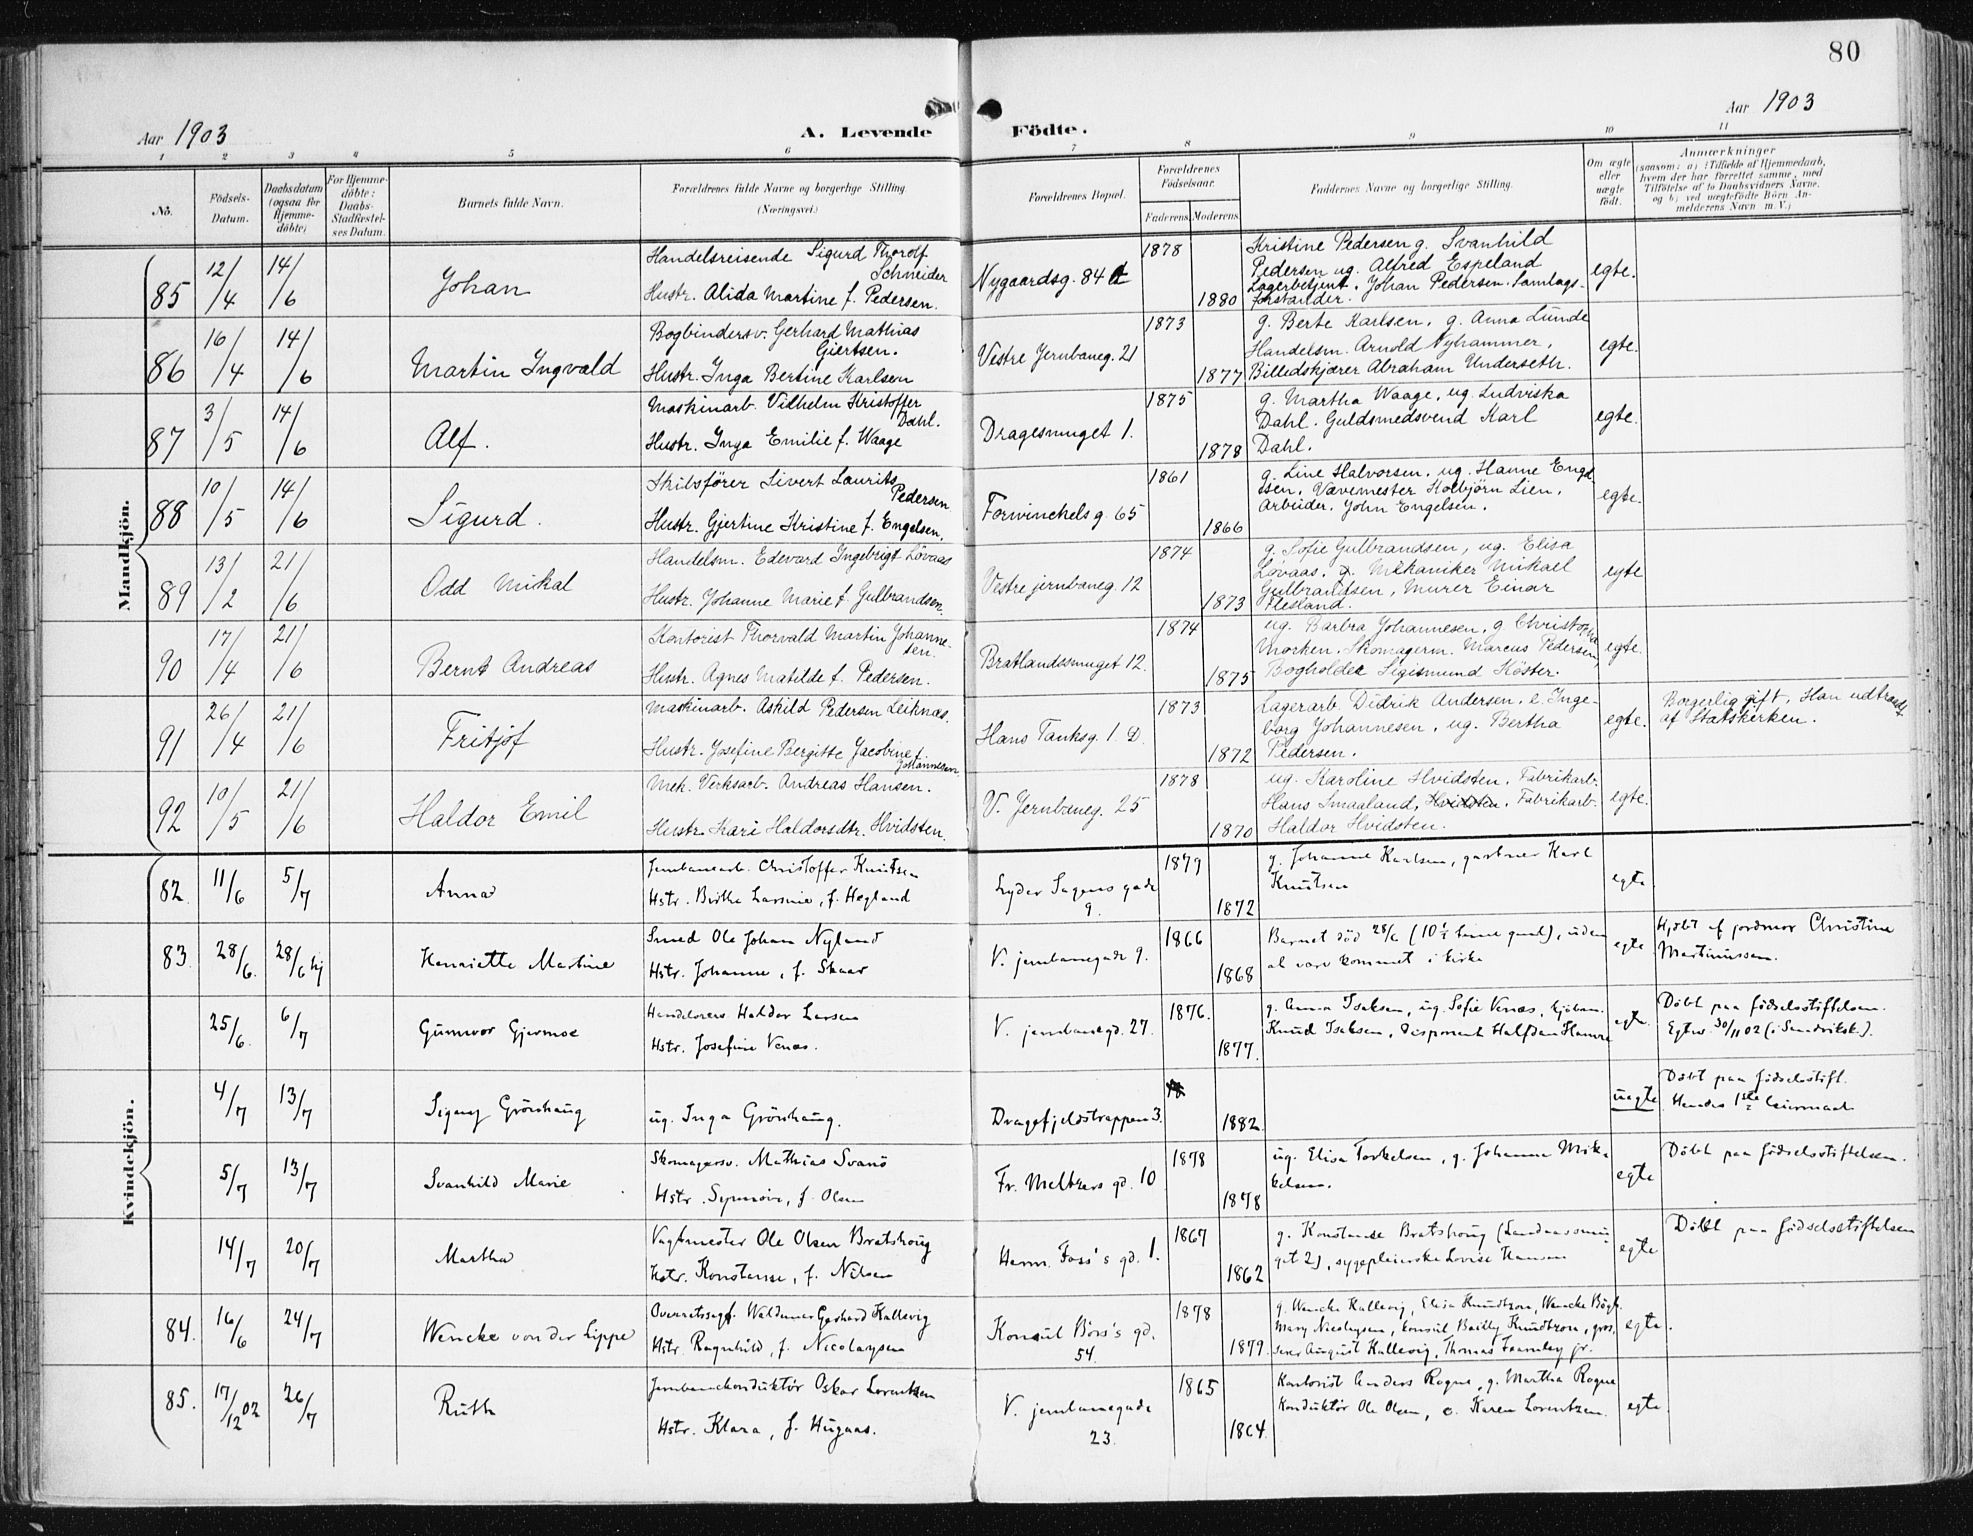 80
Aar 1903
A. Levende Födte.
Aar 1903
1 2 3 4 5 6 7 8 9 10 11
No.
Födsels-Datum.
Daabsdatum (ogsaa for Hjemme-döbte)
For Hjemme-döbte: Daabs-Stadfæstel-ses Datum.
Barnets fulde Navn.
Forældrenes fulde Navne og borgerlige Stilling
(Næringsvei.)
Forældrenes Bopæl.
Forældrenes Födselsaar.
Faderens Moderens
Faddernes Navne og borgerlige Stilling.
Om ægte eller uægte født.
Anmærkninger
(saasom: a) i Tilfælde af Hjemmedaab,
hvem der har forrettet samme, med
Tilföielse af to Daabsvidners Navne.
og b) ved uægtefödte Börn An-
melderens Navn m. V.)
Mandkjön.
85 12/4 14/6 Johan
Handelsreisende Sigurd Thorolf
Schneider
Hustr. Alida Martine f. Pedersen.
Nygaardsg. 84
1878 1880
Kristine Pedersen g. Svanhild
Pedersen ug. Alfred Espeland
Lagerbetjent. Johan Pedersen. Samlags-
forstander.
egte.
86 16/4 14/6 Martin Ingvald
Bogbindersv. Gerhard Mathias
Giertsen.
Hustr. Inga Bertine Karlsen
Vestre Jernbaneg. 21
1873 1877
g. Berte Karlsen, g. Anna Lunde
Handelsm. Arnold Nyhammer,
Billedskjærer Abraham Underseth.
egte.
87 3/5 14/6 Alf.
Maskinarb. Vilhelm Kristoffer
Dahl.
Hustr. Inga Emilie f. Waage
Dragesmuget 1.
1875 1878
g. Martha Waage, ug. Ludviska
Dahl. Guldsmedsvend Karl
Dahl.
egte.
88 10/5 14/6 Sigurd.
Skibsfører Sivert Laurits
Pedersen
Hustr. Gjertine Kristine f. Engelsen.
Forwinckelsg. 65
1861 1866
g. Line Halvorsen, ug. Hanne Engel
sen, Vævemester Kolbjörn Lien,
Arbeider. John Engelsen.
egte.
89 13/2 21/6 Odd Mikal
Handelsm. Edevard Ingebrigt Lövaas
Hustr. Johanne Marie f. Gulbrandsen.
Vestre jernbaneg. 12
1874 1873
g. Sofie Gulbrandsen, ug. Elisa
Lövaas, Mekaniker Mikael
Gulbrandsen, Murer Einar
Flesland.
egte
90 17/4 21/6 Bernt Andreas
Kontorist Thorvald Martin Johanne-
sen.
Hustr. Agnes Matilde f. Pedersen.
Bratlandssmuget 12.
1874 1875
ug. Barbra Johannesen, g. Christopha
Morken. Skomagerm. Marcus Pedersen,
Bogholder Sigismund Köster.
egte.
91 26/4 21/6 Fritjof
Maskinarb. Askild Pedersen Leiknæs.
Hustr. Josefine Bergitte Jacobine f.
Johannesen
Hans Tanksg. 1. D.
1873 1872
Lagerarb. Didrik Andersen, e. Inge-
borg Johannesen, ug. Bertha
Pedersen.
egte.
Borgerlig gift, Han udtraadt
af Statskirken.
92 10/5 21/6 Haldor Emil
Mek. Verksarb. Andreas Hansen.
Hustr. Kari Haldorsdtr. Hvidsten.
V. Jernbaneg. 25
1878 1870
ug. Karoline Hvidsten. Fabrikarb.
Hans Smaaland, Hvidsten. Fabrikarb.
Haldor Hvidsten.
egte.
Kvindekjön.
82. 11/6 5/7 Anna
Jernbanearb. Christoffer Knutsen
Hstr. Birthe Larsine, f. Hegland
Lyder Sagens gade
9.
1879 1872
g. Johanne Karlsen, gartner Karl
Knutsen
egte
83. 28/6. 28/6 hj Henriette Martine
Smed Ole Johan Nyland
Hstr. Johanne, f. Skaar
V. jernbanegade 9.
1866 1868
Barnet död 28/6 (10 1/2 time gml), uden
at være kommet i kirke
egte
Hj.døbt af jordmor Christine
Martinussen.
25/6. 6/7 Gunnvor Gjermoe
Handelsreis. Haldor Larsen
Hstr. Josefine Venæs.
V. jernbanegd. 27.
1876. 1877.
g. Anna Isaksen, ug. Sofie Venæs, kjøbm.
Knud Isaksen, disponent Halfdan Hamre
egte.
Døbt paa fødselsstiftelsen.
Egtev. 30/11 02 (i Sandviksk.).
4/7 13/7 Signy Grönhaug
ug. Inga Grönhaug.
Dragefjeldstrappen 3.
1882.
uegte
Døbt paa fødselsstift.
Hendes 1ste leiermaal
5/7 13/7 Svanhild Marie
Skomagersv. Mathias Svanö
Hstr. Synnöve, f. Olsen
Fr. Meltzers gd. 10
1878 1878
ug. Elisa Torkelsen, g. Johanna Mik-
kelsen.
egte
Døbt paa fødselsstiftelsen.
14/7 20/7 Martha
Vagtmester Ole Olsen Bratshoug
Hstr. Konstanse, f. Nilsen
Herm. Foss's gd. 1.
1867 1862
g. Konstanse Bratshoug (Landaassmu-
get 2), sygepleierske Lovise Hansen
egte
Døbt paa fødselsstiftelsen
84. 16/6 24/7 Wencke von der Lippe
Overretssagf. Waldemar Gerhard Kallevig
Hstr. Ragnhild, f. Nicolaysen
Konsul Börs's gd.
54.
1878 1879
g. Wencke Kallevig, Elisa Knudtzon, Wencke Bögh,
Mary Nicolaysen, konsul Bailly Knudtzon, gros-
serer August Kallevig, Thomas Fearnley jr.
egte.
85. 17/12 02 26/7 Ruth
Jernbanekonduktör Oskar Lorentzen
Hstr. Klara, f. Hugaas.
V. jernbanegade
23.
1865 1864.
Kontorist Anders Rogne, g. Martha Rogne
Konduktör Ole Olsen, e. Karen Lorentzen.
egte.